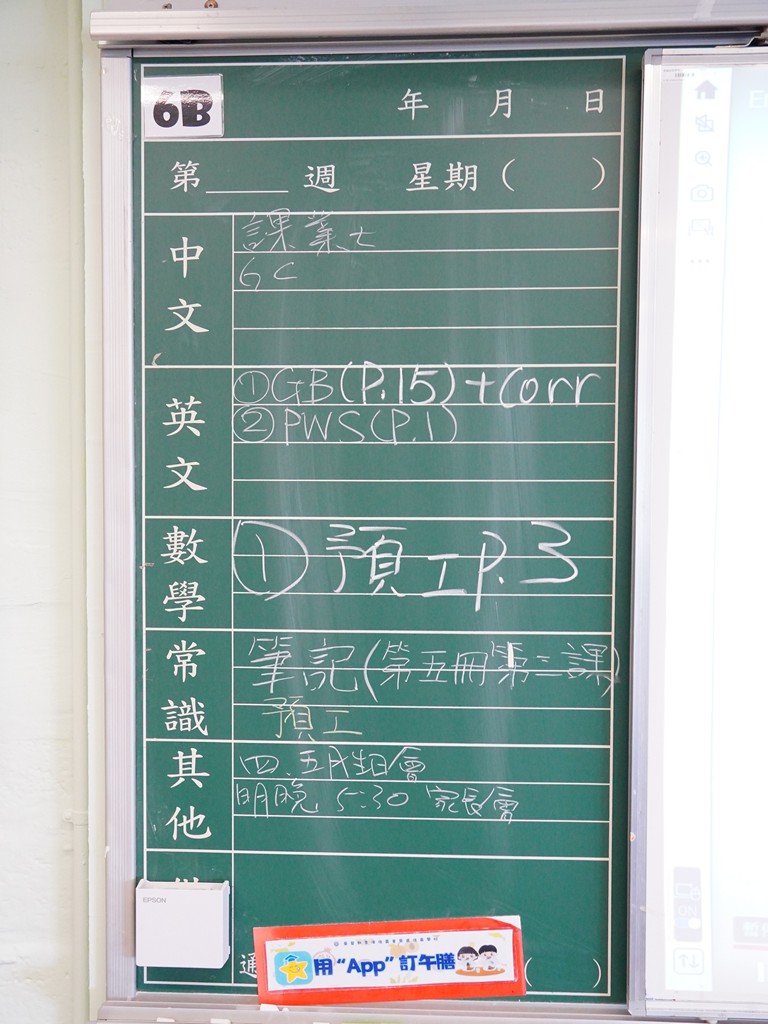 6B
年 月 日
第____週 星期( )
中文
課業七
GC
英文
①GB(P.15)+Corr
②PWS(P.1)
數學
①預工P.3
常識
筆記(第五冊第三課)
預工
其他
四、五月生日會
明晚 5:30 家長會
EPSON
通
( )
用“App”訂午膳